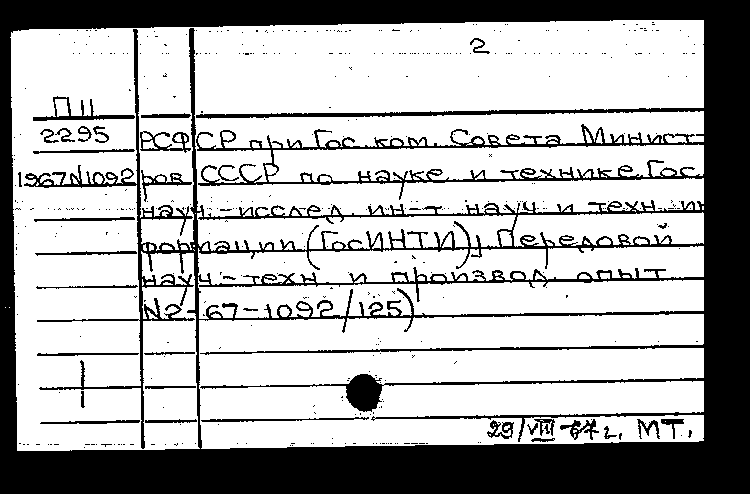 2
П11
2295 РСФСР при Гос. ком. Совета Минист-
1967N1092 ров СССР по науке и технике. Гос.
науч.-исслед. ин-т науч. и техн. ин
формации (ГосИНТИ)] Передовой
науч.-техн. и производ. опыт
N2-67-1092/125).
29/VIII-67г. МТ.